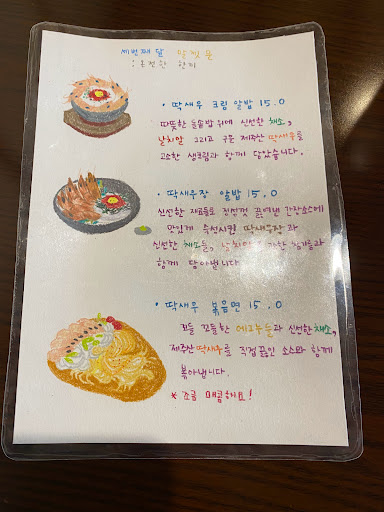 세번째 달 맛있는
: 온전한 한끼
• 딱새우 크림 알밥 15.0
따뜻한 돌솥밥 위에 신선한 채소,
날치알 그리고 구운 제주산 딱새우를
고소한 생크림과 함께 담았습니다.
• 딱새우장 알밥 15.0
신선한 재료들로 직접 끓여낸 간장소스에
맛있게 숙성시킨 딱새우장과
신선한 채소들, 날치알 참기름과
함께 담아냅니다.
• 딱새우 볶음면 15.0
꼬들 꼬들한 에그누들과 신선한 채소,
제주산 딱새우를 직접 끓인 소스와 함께
볶아냅니다.
* 조금 매콤해요!